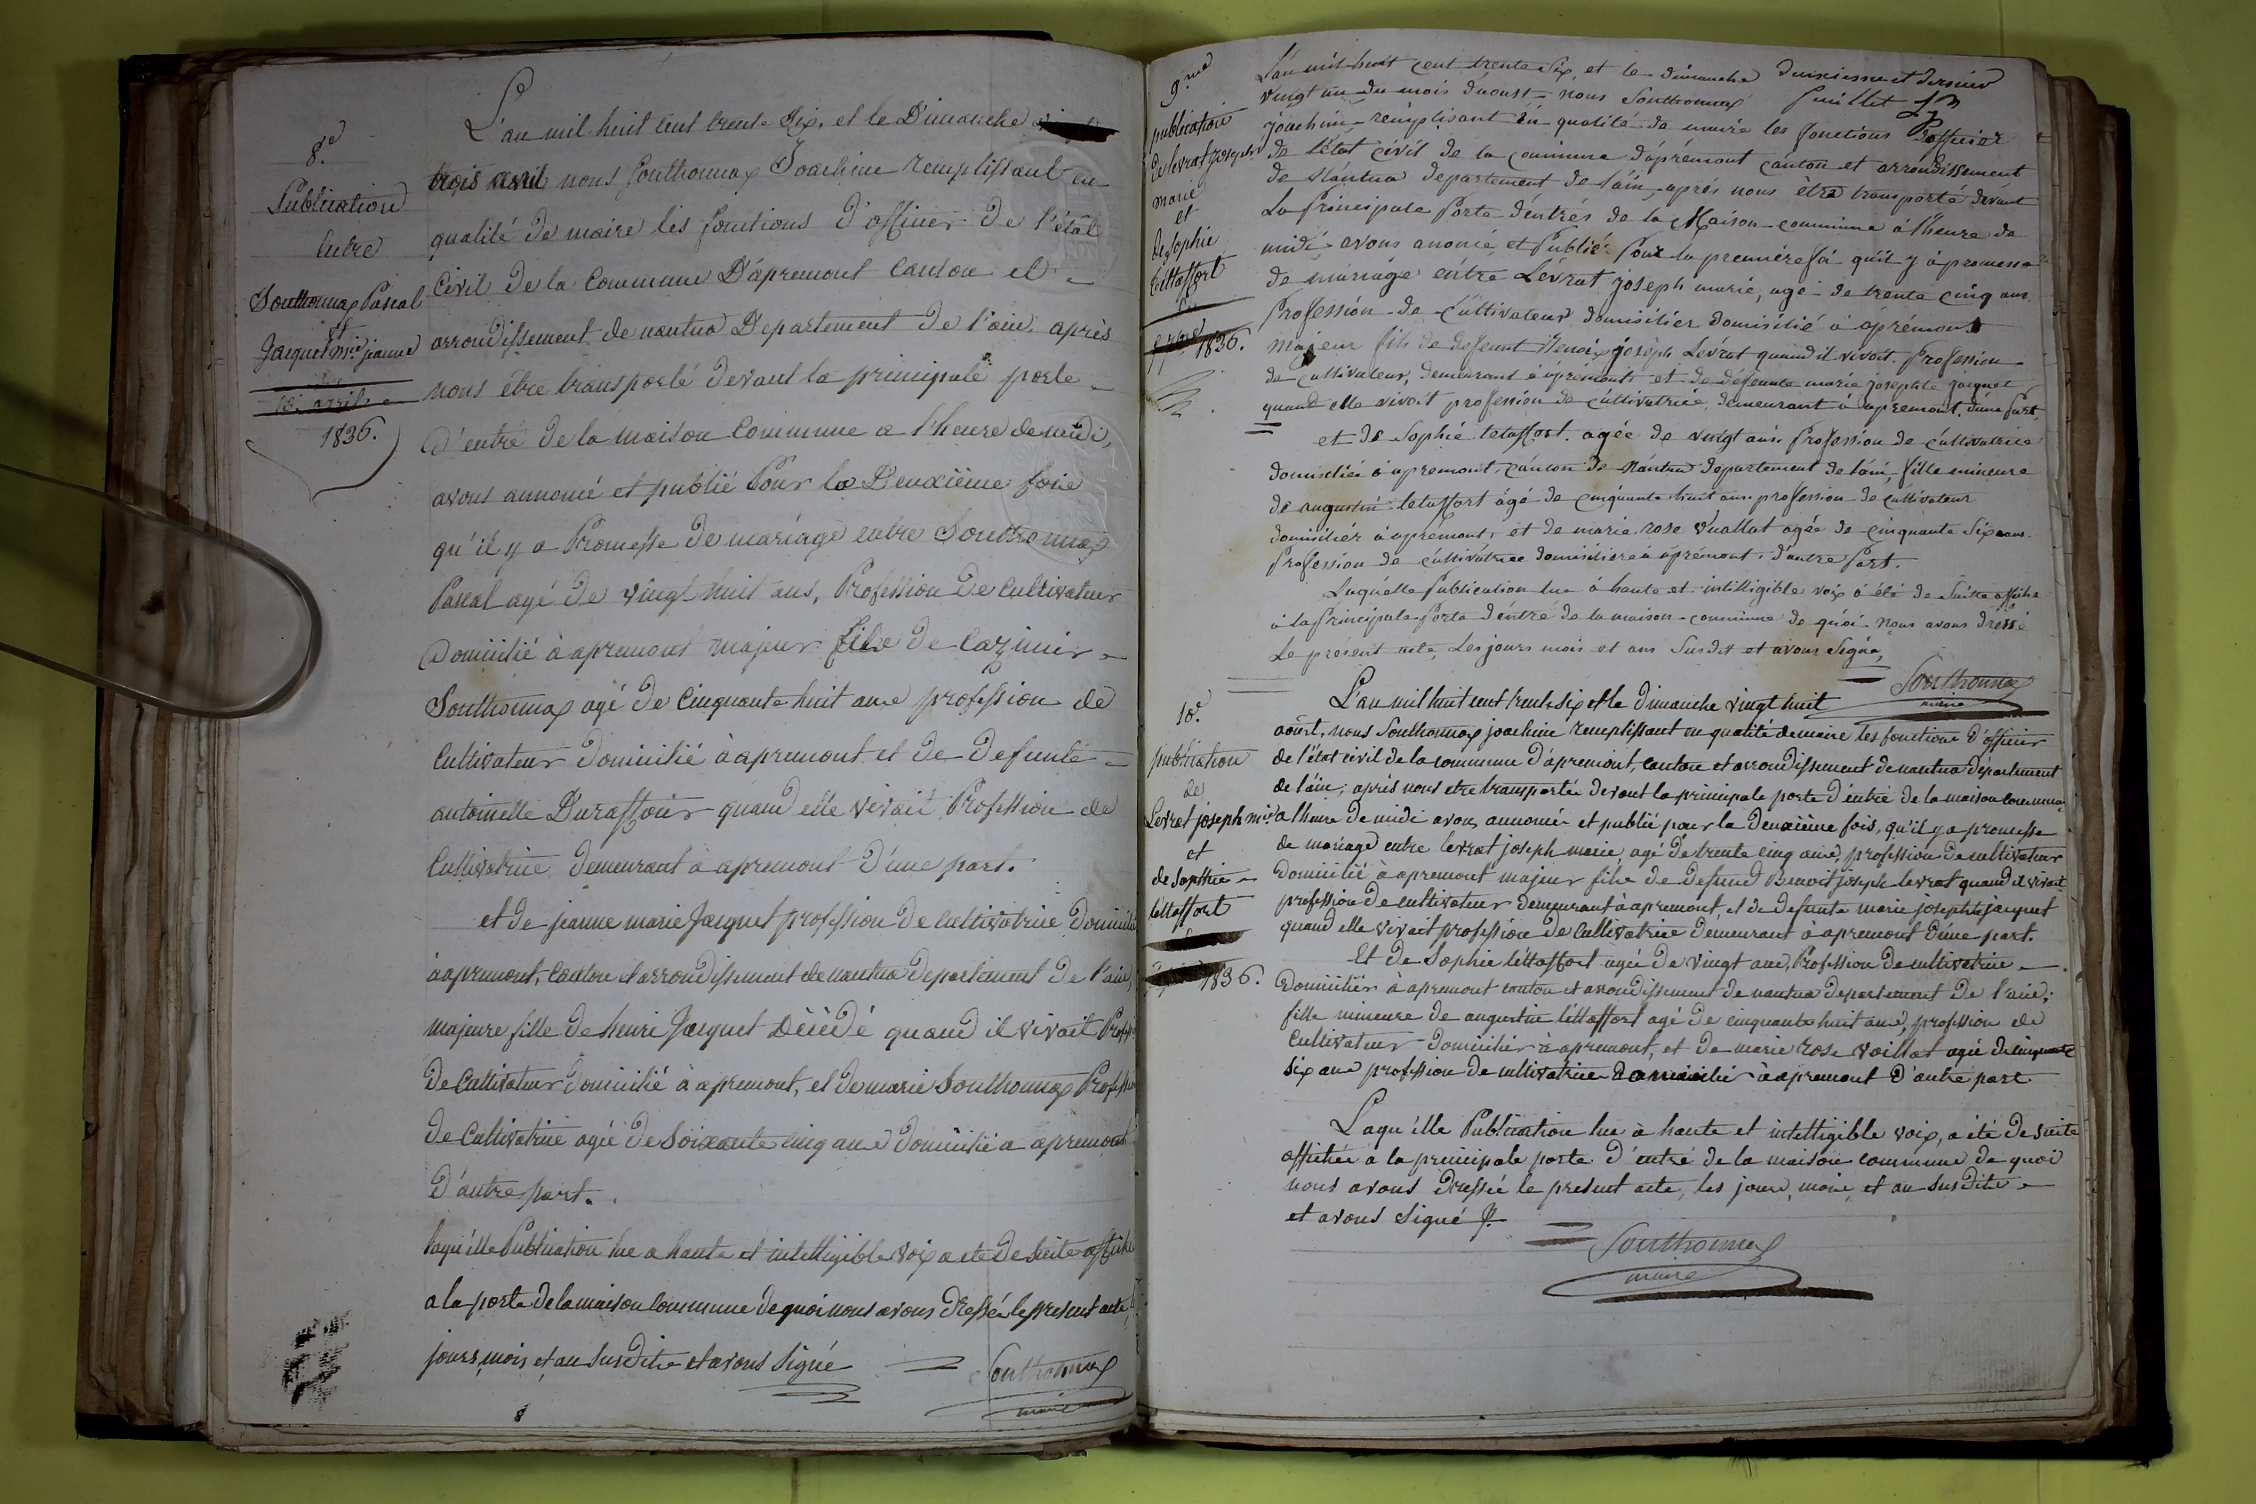 8.e
Publication
Entre
Southonnax Pascal
et
Jacquet m.ie jeanne
avril
1836.
L'an mil huit cent trente Six, et le Dimanche
trois avril nous Southonnax Joachim remplissant en
qualité de maire les fonctions d'officier de l'état
Civil de la Commune D'apremont Canton et
arrondissement de nantua Departement de l'ain. après
nous être transporté devant la principale porte
d'entré de la maison Commune a l'heure de midi,
avons annoncé et publié Pour la Deuxième fois
qu'il y a Promesse de mariage entre Southonnax
Pascal agé de vingt-huit ans, Profession De Cultivateur
Domicilié à apremont majeur fils de Cazimir
Southonnax agé de Cinquante huit ans profession de
Cultivateur Domicilié à apremont et de Defunte
antoinette Duraffour quand elle vivait Profession de
Cultivatrice Demeurant à apremont D'une part.
et de jeanne marie Jacquet profession De Cultivatrice Domicilié
à apremont, Canton et arrondissement de nantua Departement De l'ain,
majeure fille de henri Jacquet Décédé quand il vivait Profession
De Cultivateur Domicilié à apremont, et de marie Southonnax Profession
de Cultivatrice agée de Soixante cinq ans Domicilié a apremont
D'autre part.
laqu'elle Publication lue a haute et intelligible Voix a été De Suite affiché
a la porte de la maison Commune de quoi nous avons Dressé le present acte
jours, mois et an Susdits et avons Signé
Southonnax
maire
9.me
publication
de levrat joseph
marie
et
de Sophie
lettaffort
1836.
L'an mil huit cent trente Six, et le dimanche
Deuxiesme et dernier
feuillet
vingt un du mois daoust nous Southonnax
joachim remplissant én qualité de maire les fonctions D'officier
de l'état civil de la commune d'áprémont canton et arrondissement
de Nantua departement de l'áin, aprés nous être transporté dévant
La Principale Porte déntrés de la Maison commune à l'heure de
midi avons anoncé et Publié Pour la premiére foi qu'il y à promesse
de mariage entre Lévrat joseph marie, agé de trente cinq ans
Profession de Cultivateur domisilier domisilié à áprémont
majeur fils de defeunt Benoix joséph Levrat quand il vivoit Profession
de Cultivateur, demeurant à áprémont et de défeunte marie josephte jacquet
quand elle vivoit profession de cultivatrice, demeurant à apremont, dune Part,
et de Sophie letaffort. agée de vingt ans Profession de cultivatrice
domiciliée à apremont, canton de Nántua departement de láin, fille mineure
de augustin letaffort ágé de cinquante huit ans profession de cultivateur
domisiliér à apremont, et de marie rose Vuallat agée de cinquante Six ans
Profession de cultivátrice domisiliere à aprémont, d'autre Part.
Laquélle Publication lue à haute et intilligible voix à été de Suitte affiché
à la Principale Porte d'éntré de la maison commune de quoi nous avons dréssé
Le présent acte, Les jours mois et ans Susdit et avons Signé,
Southonnax
maire
10.e
publication
de
Levrat joseph m.ie
et
de Sophie
lettaffort
1836.
L'an mil huit cent trente Six et le Dimanche vingt huit
aôut, nous Southonnax joachim remplissant en qualité de maire les fonctions D'officier
de l'état civil de la commune d'apremont, canton et arrondissement de nantua departement
de l'ain; aprés nous etre transporté devant la principale porte d'entré de la maison commune
a l'heure De midi avons annoncé et publié pour la Deuxième fois, qu'il y a promesse
de mariage entre levrat joseph marie, agé De trente cinq ans, profession De cultivateur
Domicilié à apremont majeur fils de Defunt Benoit joseph levrat quand il vivait
profession De cultivateur demeurant à apremont, et de Defunte marie josephte jacquet
quand elle vivait profession De Cultivatrice Demeurant à apremont D'une part.
Et De Sophie léttaffort agée De vingt ans, Profession De cultivatrice
Domicilier à apremont canton et arrondissement de nantua departement De l'ain;
fille mineure de augustin l'éttaffort agé De cinquante huit ans, profession de
Cultivateur Domicilier à apremont, et De marie rose Vaillat agée de cinquante
Six ans profession de cultivatrice Domicilier à apremont D'autre part
Laqu'elle Publication lue à haute et intelligible voix, a été De suite
affichée a la principale porte D'entré de la maison commune de quoi
nous avons Dressé le present acte, les jours, mois, et an Susdits
et avons Signé
Southonnax
maire